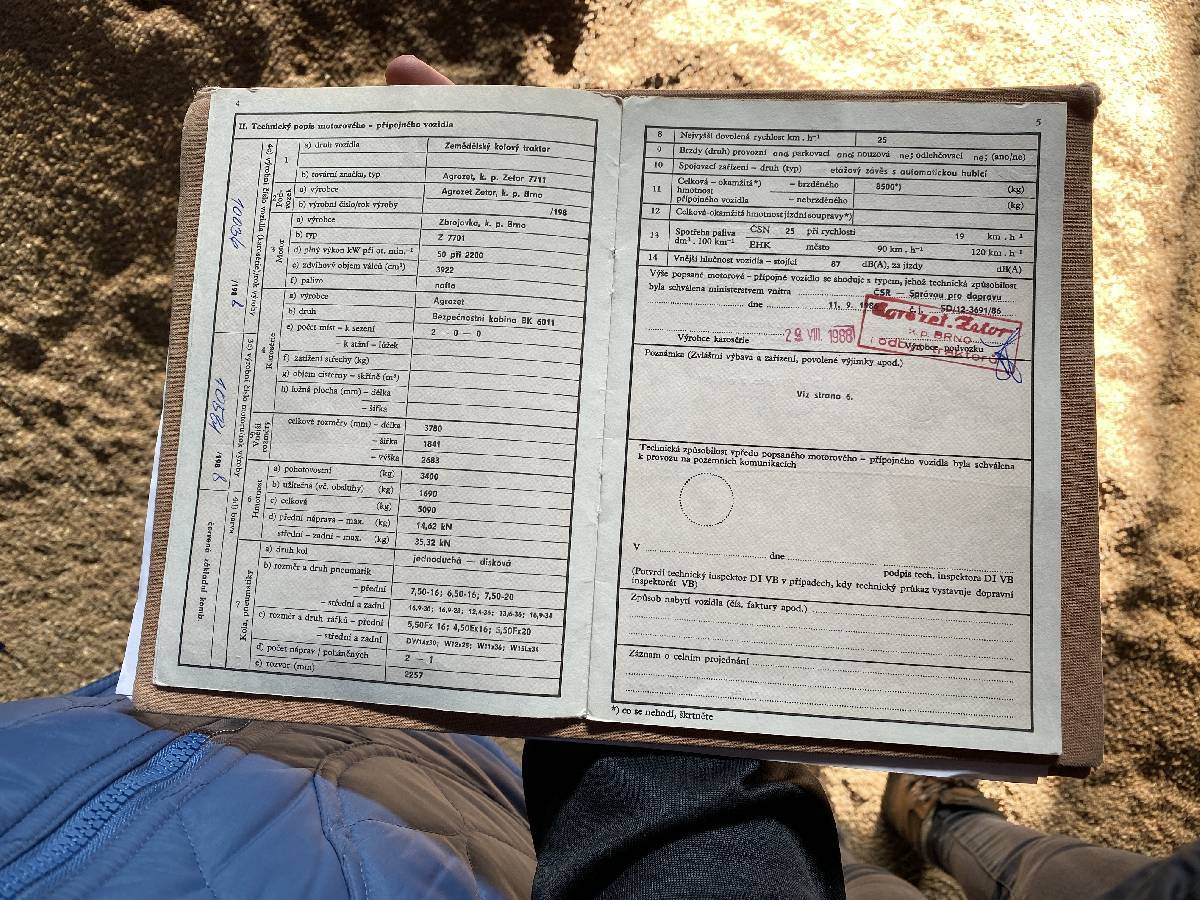 4
II. Technický popis motorového – přípojného vozidla
1
a) druh vozidla Zemědělský kolový traktor
b) tovární značka, typ Agrozet, k. p. Zetor 7711
2 Podvozek
a) výrobce Agrozet Zetor, k. p. Brno
b) výrobní číslo/rok výroby /198
Motor
a) výrobce Zbrojovka, k. p. Brno
b) typ Z 7701
d) plný výkon kW při ot. min.⁻¹ 50 při 2200
e) zdvihový objem válců (cm³) 3922
f) palivo nafta
Karosérie
a) výrobce Agrozet
b) druh Bezpečnostní kabina BK 6011
e) počet míst – k sezení 2 — 0 — 0
– k stání – lůžek
f) zatížení střechy (kg)
g) objem cisterny – skříně (m³)
h) ložná plocha (mm) – délka
– šířka
Vnější rozměry
celkové rozměry (mm) – délka 3780
– šířka 1841
– výška 2683
Hmotnost
a) pohotovostní (kg) 3400
b) užitečná (vč. obsluhy) (kg) 1690
c) celková (kg) 5090
d) přední náprava – max. (kg) 14,62 kN
střední – zadní – max. (kg) 35,32 kN
7 Kola, pneumatiky
a) druh kol jednoduchá — disková
b) rozměr a druh pneumatik
– přední 7,50-16; 6,50-16; 7,50-20
– střední a zadní 16,9-30; 16,9-28; 12,4-36; 13,6-36; 16,9-34
c) rozměr a druh ráfků – přední 5,50Fx 16; 4,50Ex16; 5,50Fx20
– střední a zadní DW14x30; W12x28; W11x36; W15Lx34
d) počet náprav / poháněných 2 — 1
e) rozvor (mm) 2257
výrobní číslo vozidla (karosérie)/rok výroby
/198
3c) výrobní číslo motoru/rok výroby
/198
4j) barva
červená základní komb.
5
8 Nejvyšší dovolená rychlost km . h⁻¹ 25
9 Brzdy (druh) provozní ano; parkovací ano; nouzová ne; odlehčovací ne; (ano/ne)
10 Spojovací zařízení – druh (typ) etažový závěs s automatickou hubicí
11 Celková – okamžitá*) – brzděného 8500*) (kg)
hmotnost
přípojného vozidla – nebrzděného (kg)
12 Celková-okamžitá hmotnost jízdní soupravy*)
13 Spotřeba paliva ČSN 25 při rychlosti 19 km . h⁻¹
dm³ . 100 km⁻¹ EHK město 90 km . h⁻¹ 120 km . h⁻¹
14 Vnější hlučnost vozidla – stojící 87 dB(A), za jízdy dB(A)
Výše popsané motorové – přípojné vozidlo se shoduje s typem, jehož technická způsobilost
byla schválena ministerstvem vnitra ČSR — Správou pro dopravu
dne 11. 9. 1986 č. j. SD/12-3691/86
Agrozet Zetor
k.p. BRNO
29. VIII. 1988
Výrobce karosérie Výrobce podvozku
Poznámka (Zvláštní výbava a zařízení, povolené výjimky apod.)
Viz strana 6.
Technická způsobilost vpředu popsaného motorového – přípojného vozidla byla schválena
k provozu na pozemních komunikacích
V dne
podpis tech. inspektora DI VB
(Potvrdí technický inspektor DI VB v případech, kdy technický průkaz vystavuje dopravní
inspektorát VB)
Způsob nabytí vozidla (čís. faktury apod.)
Záznam o celním projednání
*) co se nehodí, škrtněte